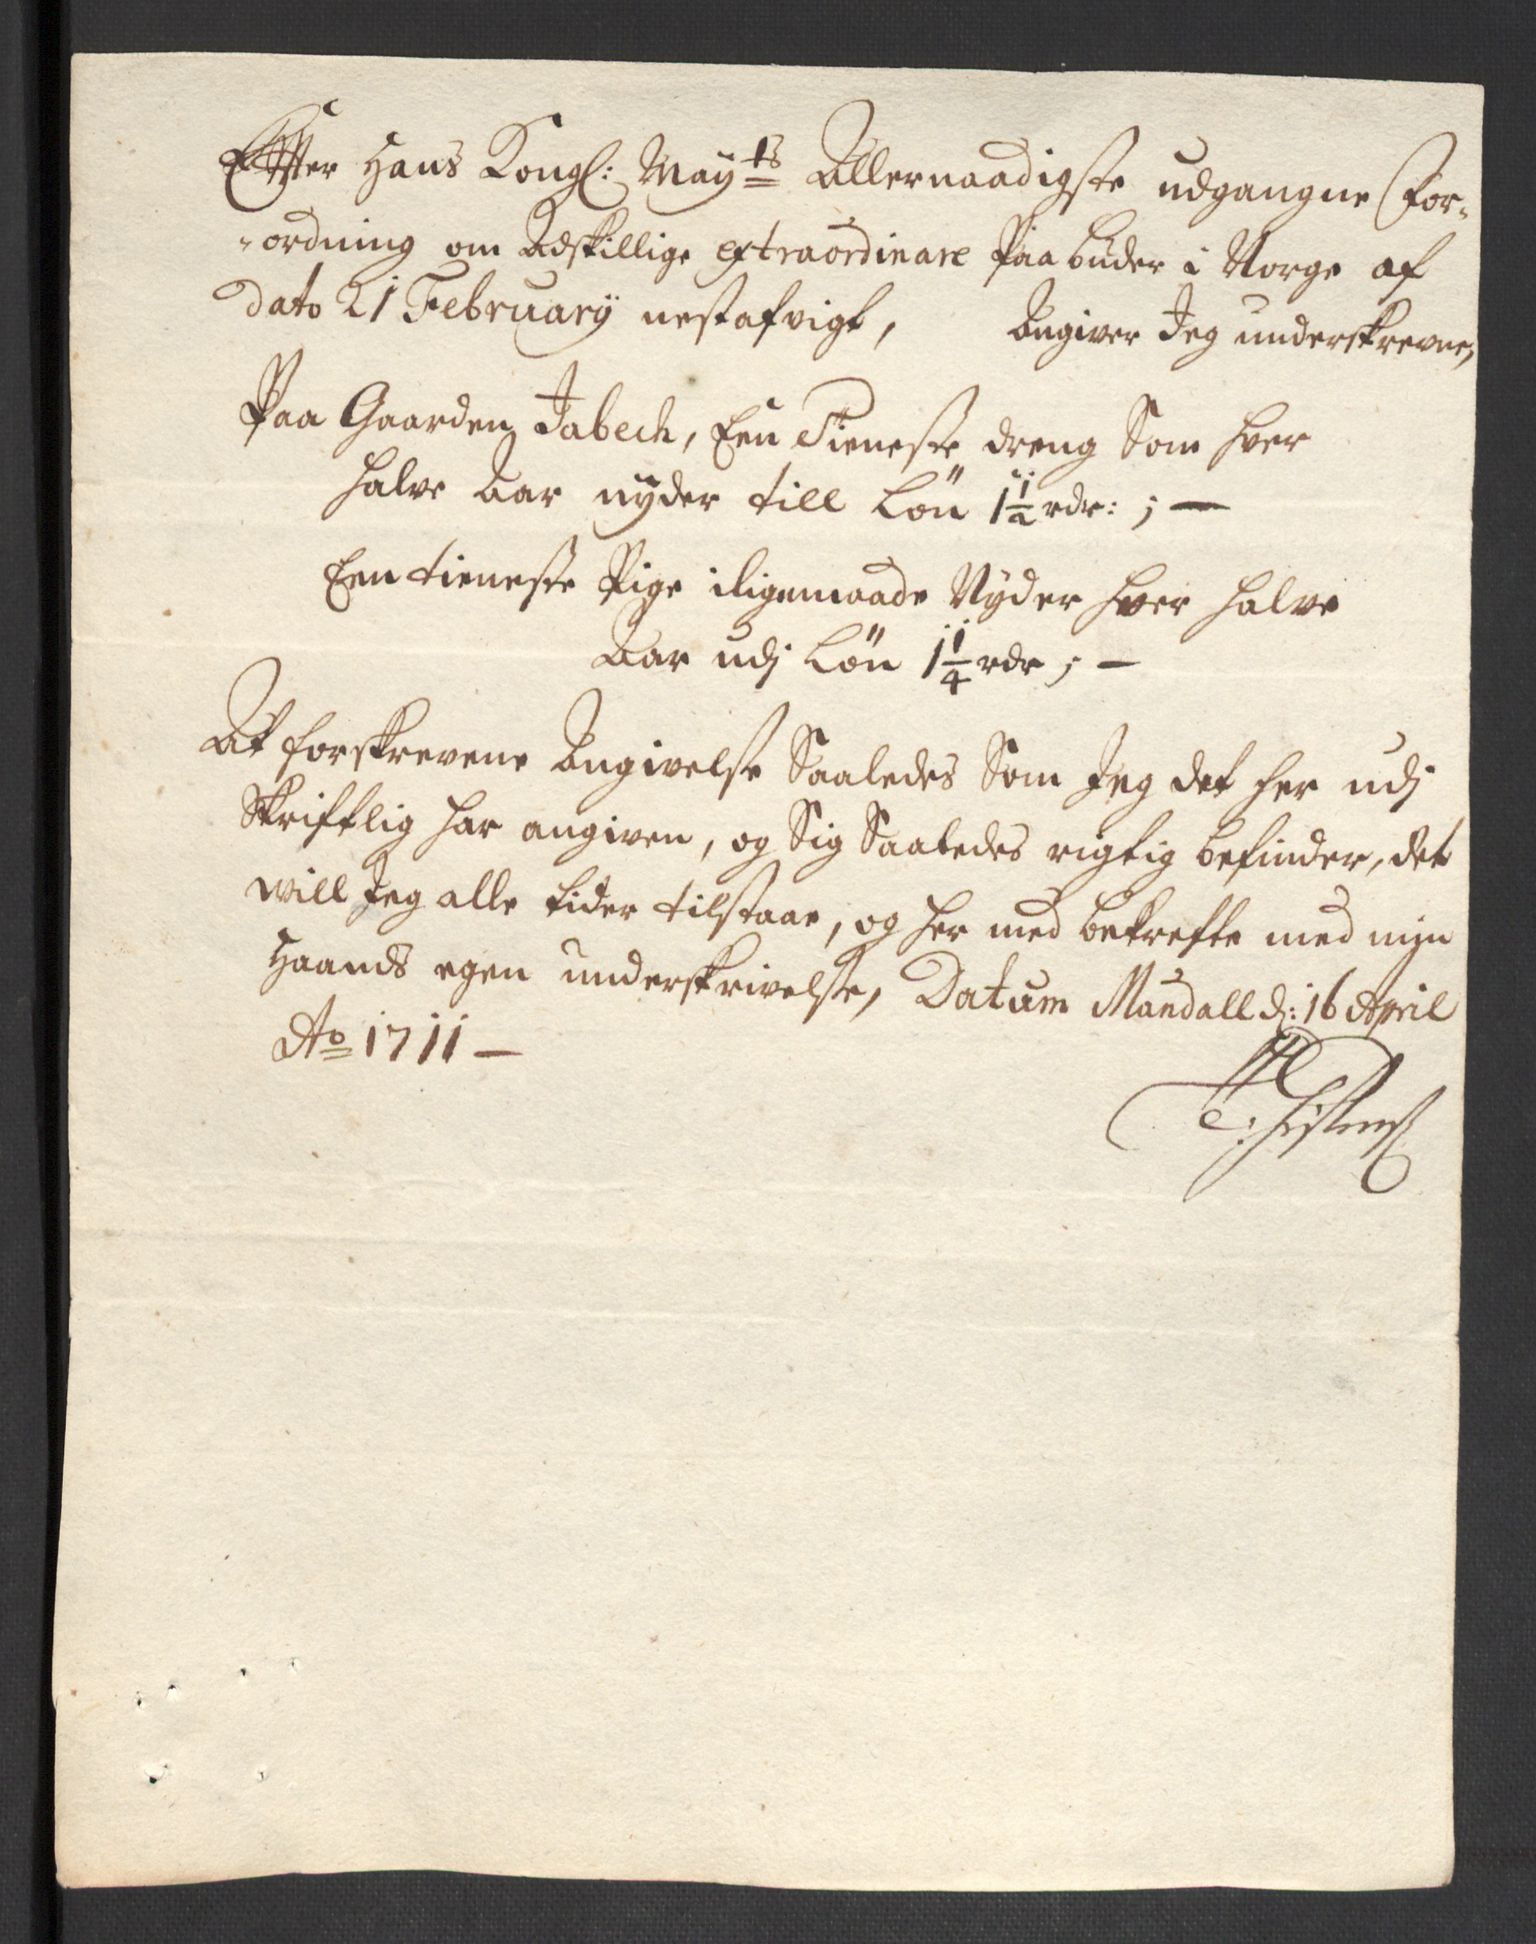 Effter Hans Kongl: May:ts Allernaadigste udgangne For-
-ordning om Adskillige extraordinare Paabuder i Norge af
dato 21 February nestafvigt, Angiver Jeg underskrevne,
Paa Gaarden Jabech, Een Tieneste dreng Som hver
halve Aar nyder till Løn 1 1/2 rdr: ; —
Een tieneste Pige iligemaade Nyder hver halve
Aar udj Løn 1 1/4 rdr ; —
At forskrevene Angivelse Saaledes Som Jeg det her udj
Skriftlig har angiven, og Sig Saaledes rigtig befinder, det
will Jeg alle tider tilstaae, og her med bekrefte med mijn
Haands egen underskrivelse, Datum Mandall d: 16 April
Ao 1711 —